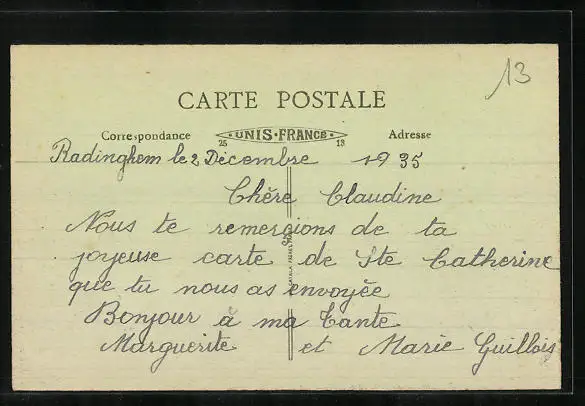 13
CARTE POSTALE
Correspondance
UNIS-FRANCE
Adresse
25
13
Radinghem le 2 Décembre 1935
Chère Claudine
Nous te remercions de ta
joyeuse carte de Ste Catherine
que tu nous as envoyée
Bonjour à ma tante
Marguerite et Marie Guillois